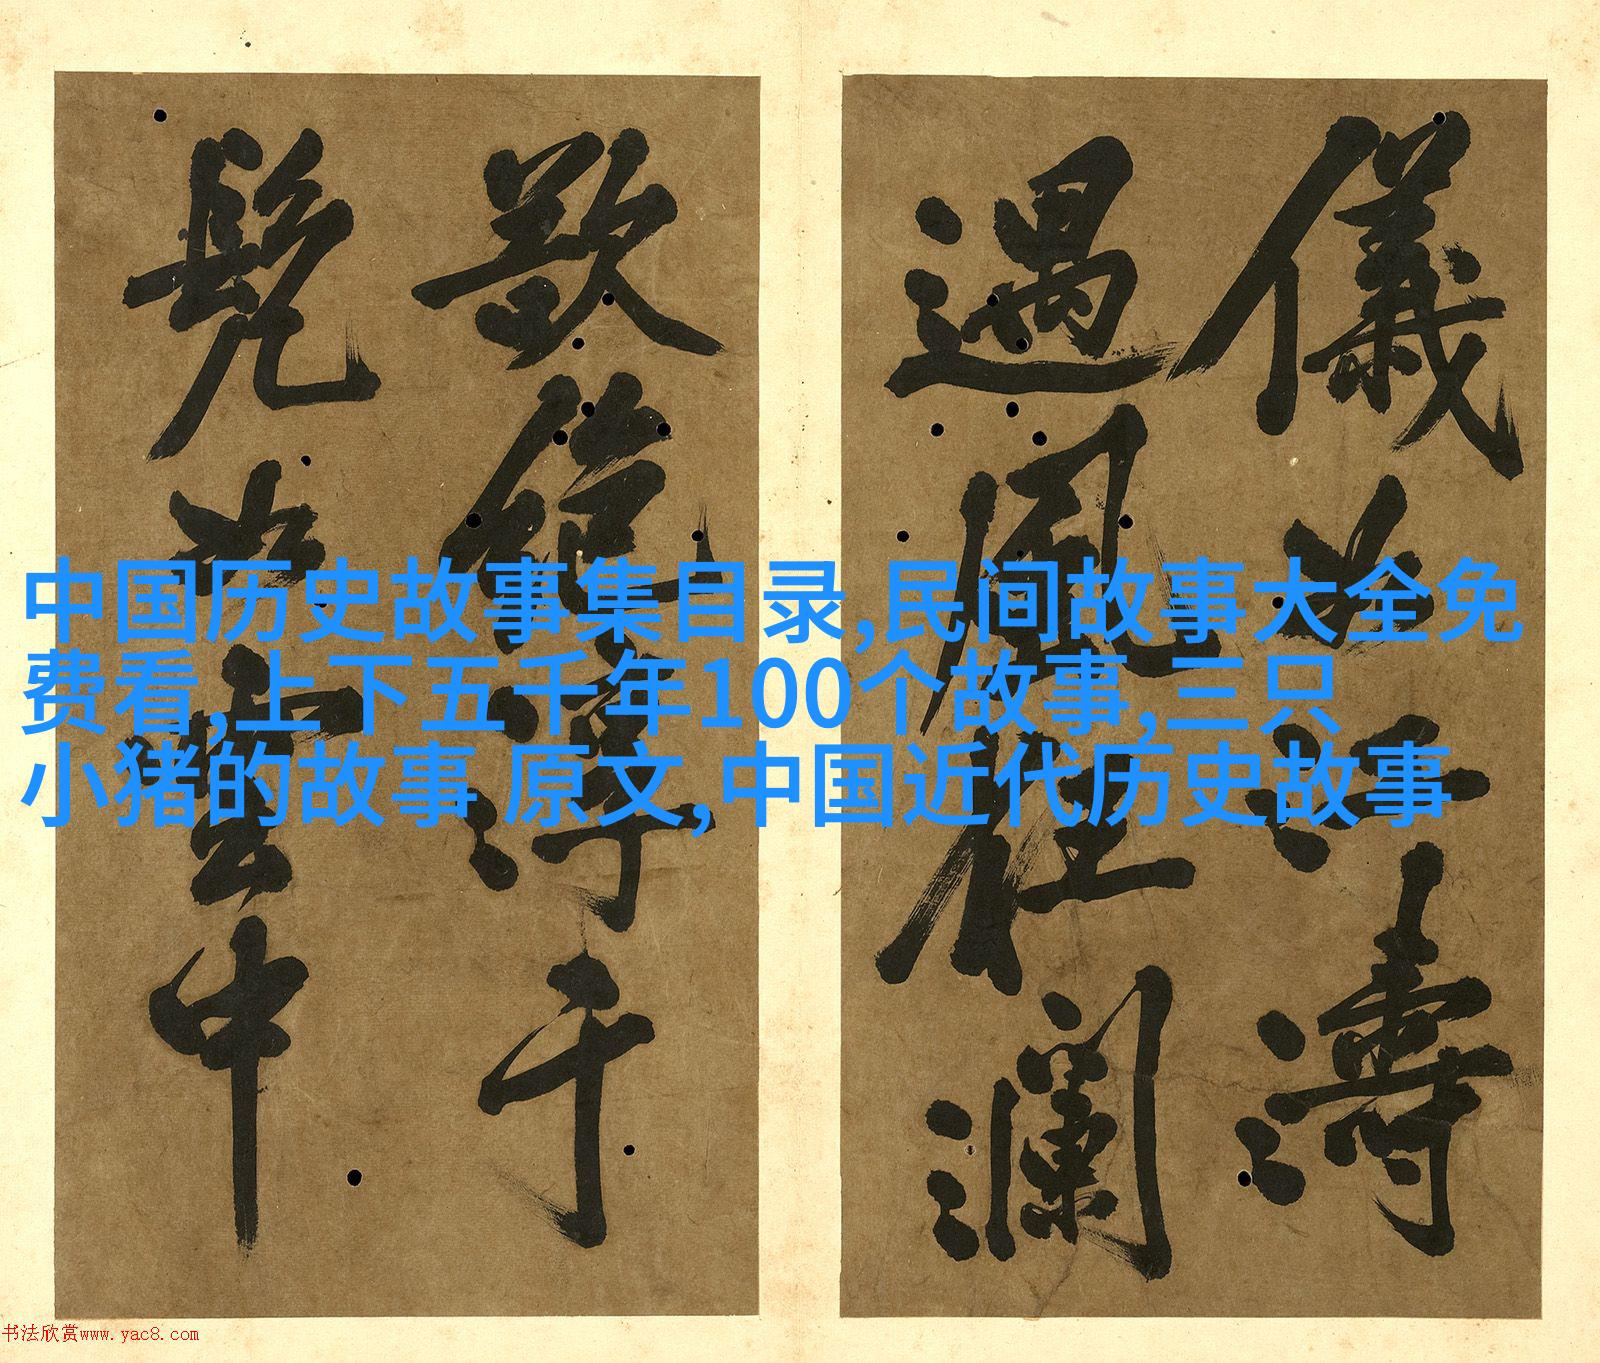 中国历史故事集目录,民间故事大全免
费看,上下五千年100个故事,三只
小猪的故事 原文,中国近代历史故事
儀 江濤
風 瀾
浮于
雲中
书法欣赏www.yac8.com